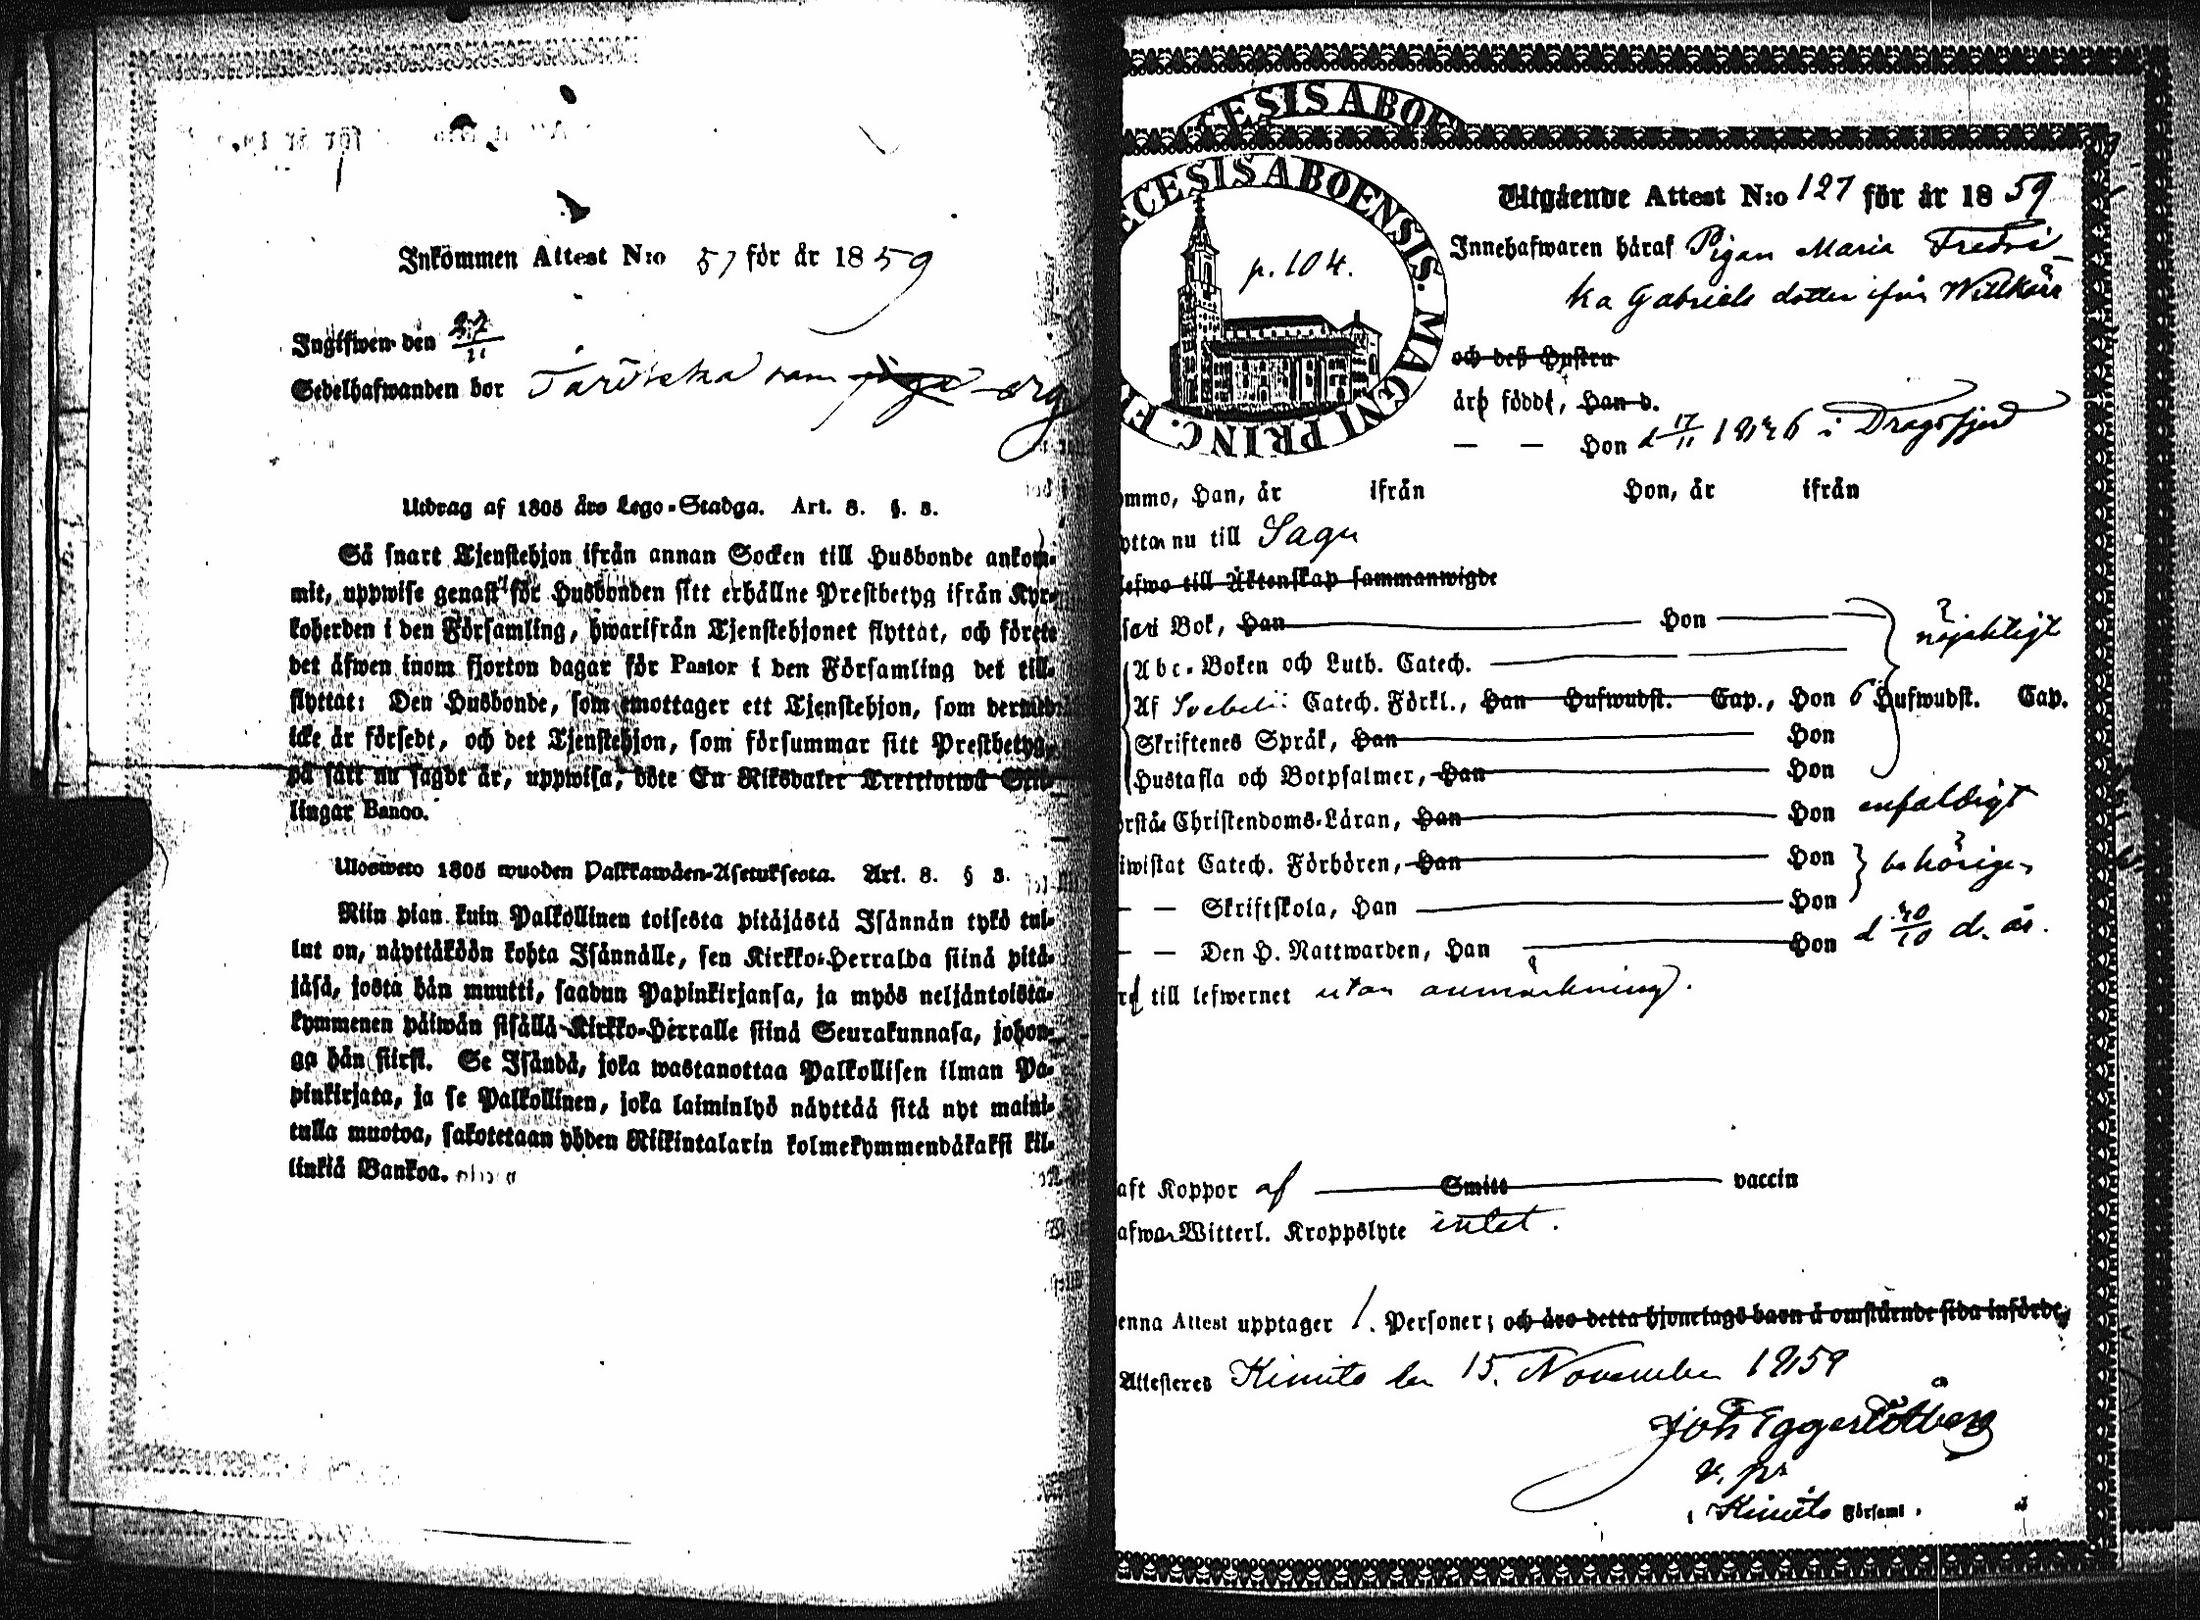 Inkommen Attest N:o 57 för år 1859
Ingifwen den 27/11
Sedelhafwanden bor
som
Utdrag af 1805 års Lego-Stadga. Art. 8. §. 3.
Så snart Tjenstehjon ifrån annan Socken till Husbonde ankom-
mit, uppwise genast för Husbonden sitt erhållne Prestbetyg ifrån Kyr-
koherden i den Församling, hwarifrån Tjenstehjonet flyttat, och förete
det äfwen inom fjorton dagar för Pastor i den Församling det till-
flyttat: Den Husbonde, som emottager ett Tjenstehjon, som dermed
icke är försedt, och det Tjenstehjon, som försummar sitt Prestbetyg,
på sätt nu sagdt är, uppwisa, böte En Riksdaler Trettiotwå Skil-
lingar Banco.
Ulosweto 1805 wuoden Palkkawäen-Asetuksesta. Art. 8. § 3.
Niin pian kuin Palkollinen toisesta pitäjästä Isännän tykö tul-
lut on, näyttäköön kohta Isännälle, sen Kirkko-Herralda siinä pitä-
jäsä, josta hän muutti, saadun Papinkirjansa, ja myös neljäntoista-
kymmenen päiwän sisällä Kirkko-Herralle siinä Seurakunnasa, johon-
ga hän siirsi. Se Isändä, joka wastanottaa Palkollisen ilman Pa-
pinkirjata, ja se Palkollinen, joka laiminlyö näyttää sitä nyt maini-
tulla muotoa, sakotetaan yhden Riikintalarin kolmekymmendäkaksi kil-
linkiä Bankoa.
CESIS ABOE
ECESIS ABOENSIS. MAGNI PRINC. F
p. 104.
Utgående Attest N:o 127 för år 1859
Innehafwaren häraf Pigan Maria Fredri-
ka Gabriels dotter ifrån Willkärr
och deß Hustru
är född, Han d.
— — Hon d 17/11 1826 i Dragsfjerd
ommo, Han, år ifrån Hon, år ifrån
yttar nu till Sagu
lefwo till Äktenskap sammanwigde
sari Bok, Han Hon nöjaktigt
Abc-Boken och Luth. Catech.
Af Svebelii Catech. Förkl., Han Hufwudst. Cap., Hon 6 Hufwudst. Cap.
Skriftenes Språk, Han Hon
Hustafla och Botpsalmer, Han Hon
örstå Christendoms-Läran, Han Hon enfaldigt
iwistat Catech. Förhören, Han Hon behörigen
— — Skriftskola, Han Hon
— — Den H. Nattwarden, Han Hon d 30/10 d. år.
till lefwernet utan anmärkning.
aft Koppor af Smitt vaccin
afwa Witterl. Kroppslyte intet.
enna Attest upptager 1. Personer; och äro detta hjonelags barn å omstående sida införde.
Attesteres Kimito den 15. November 1859
Joh Eggert
v. p:r
i Kimito Församl.